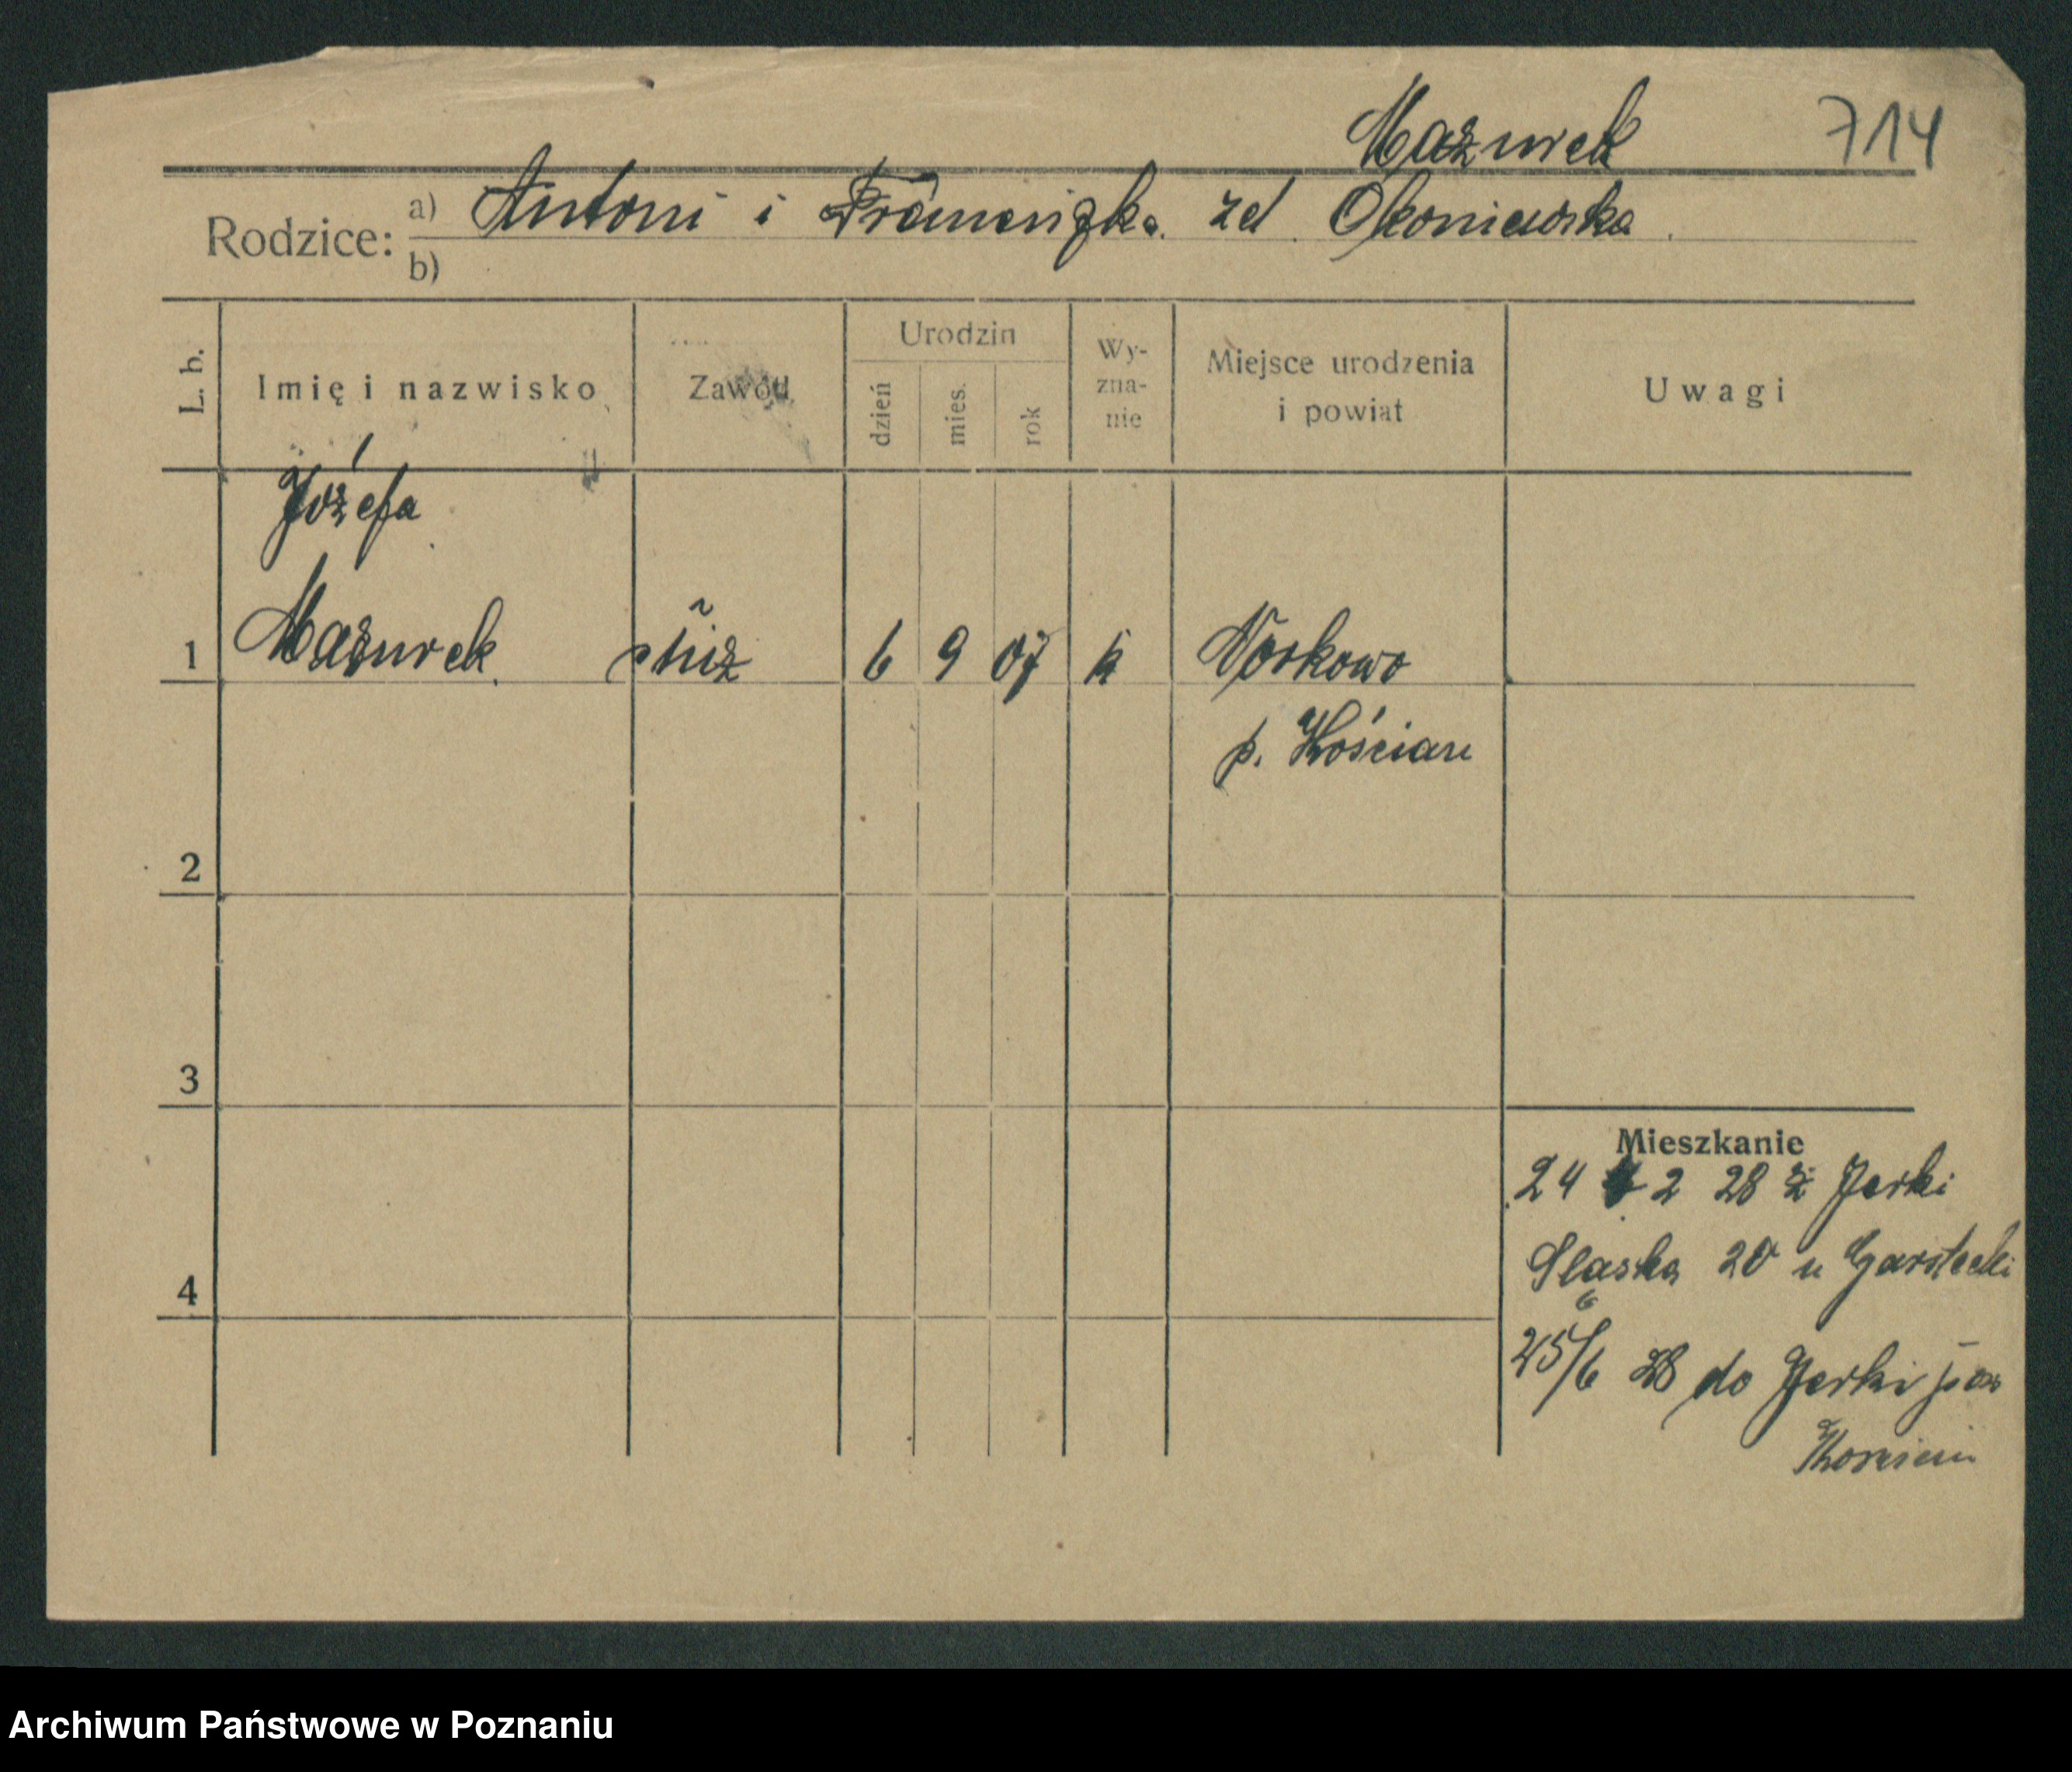 Mazurek 714
Rodzice: a) Antoni i Franciszka zd. Okoniewska
b)
L. b. Imię i nazwisko Zawód Urodzin dzień mies. rok Wy-zna-nie Miejsce urodzenia i powiat Uwagi
Józefa
1 Mazurek służ 6 9 07 k Norkowo
p. Kościan
2
3
Mieszkanie
24 2 28 z Jerki
Śląska 20 u Garstecki
4
25/6 28 do Jerki pow
Archiwum Państwowe w Poznaniu